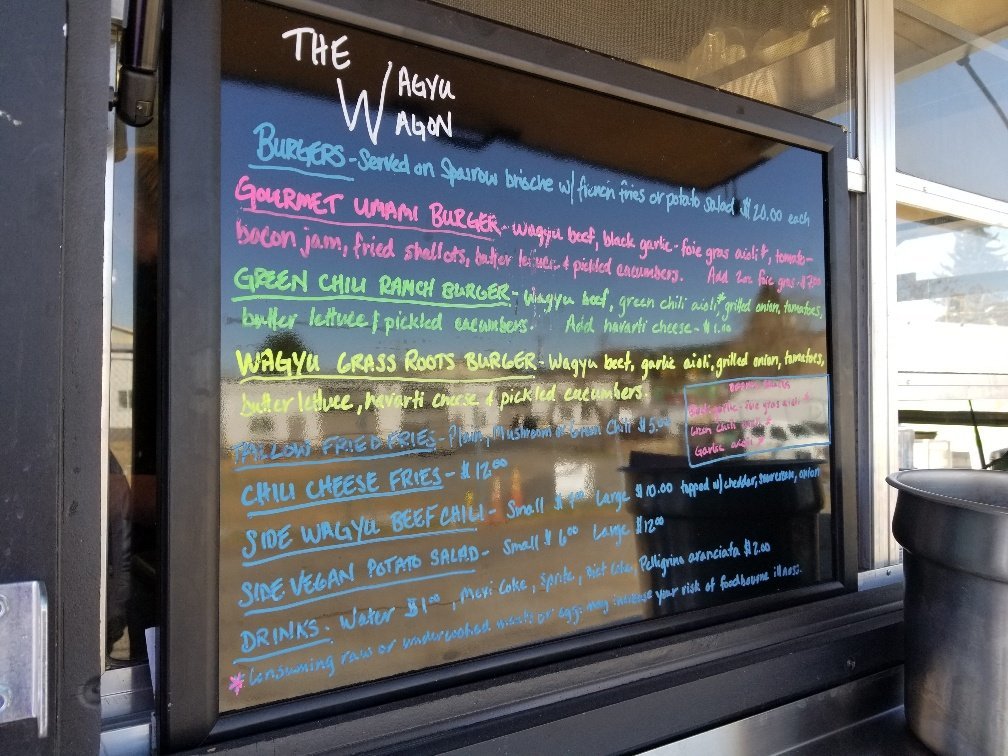 THE
WAGYU
WAGON
BURGERS - Served on Sparrow brioche w/ french fries or potato salad $20.00 each
GOURMET UMAMI BURGER - Wagyu beef, black garlic - foie gras aioli*, tomato -
bacon jam, fried shallots, butter lettuce & pickled cucumbers. Add 2oz foie gras -
GREEN CHILI RANCH BURGER - Wagyu beef, green chili aioli* grilled onion, tomatoes,
butter lettuce & pickled cucumbers. Add havarti cheese - $1.00
WAGYU GRASS ROOTS BURGER - Wagyu beef, garlic aioli, grilled onion, tomatoes,
butter lettuce, havarti cheese & pickled cucumbers.
Black garlic - foie gras aioli*
Green Chili aioli*
Garlic aioli*
TALLOW FRIED FRIES - Plain, Mushroom or Green Chili $5.00
CHILI CHEESE FRIES - $12.00
SIDE WAGYU BEEF CHILI - Small Large $10.00 topped w/ cheddar, sour cream, onion
SIDE VEGAN POTATO SALAD - Small $6.00 Large $12.00
DRINKS - Water $1.00, Mexi Coke, Sprite, Diet Coke, Pelligrino aranciata $2.00
*Consuming raw or undercooked meats or eggs may increase your risk of foodbourne illness.